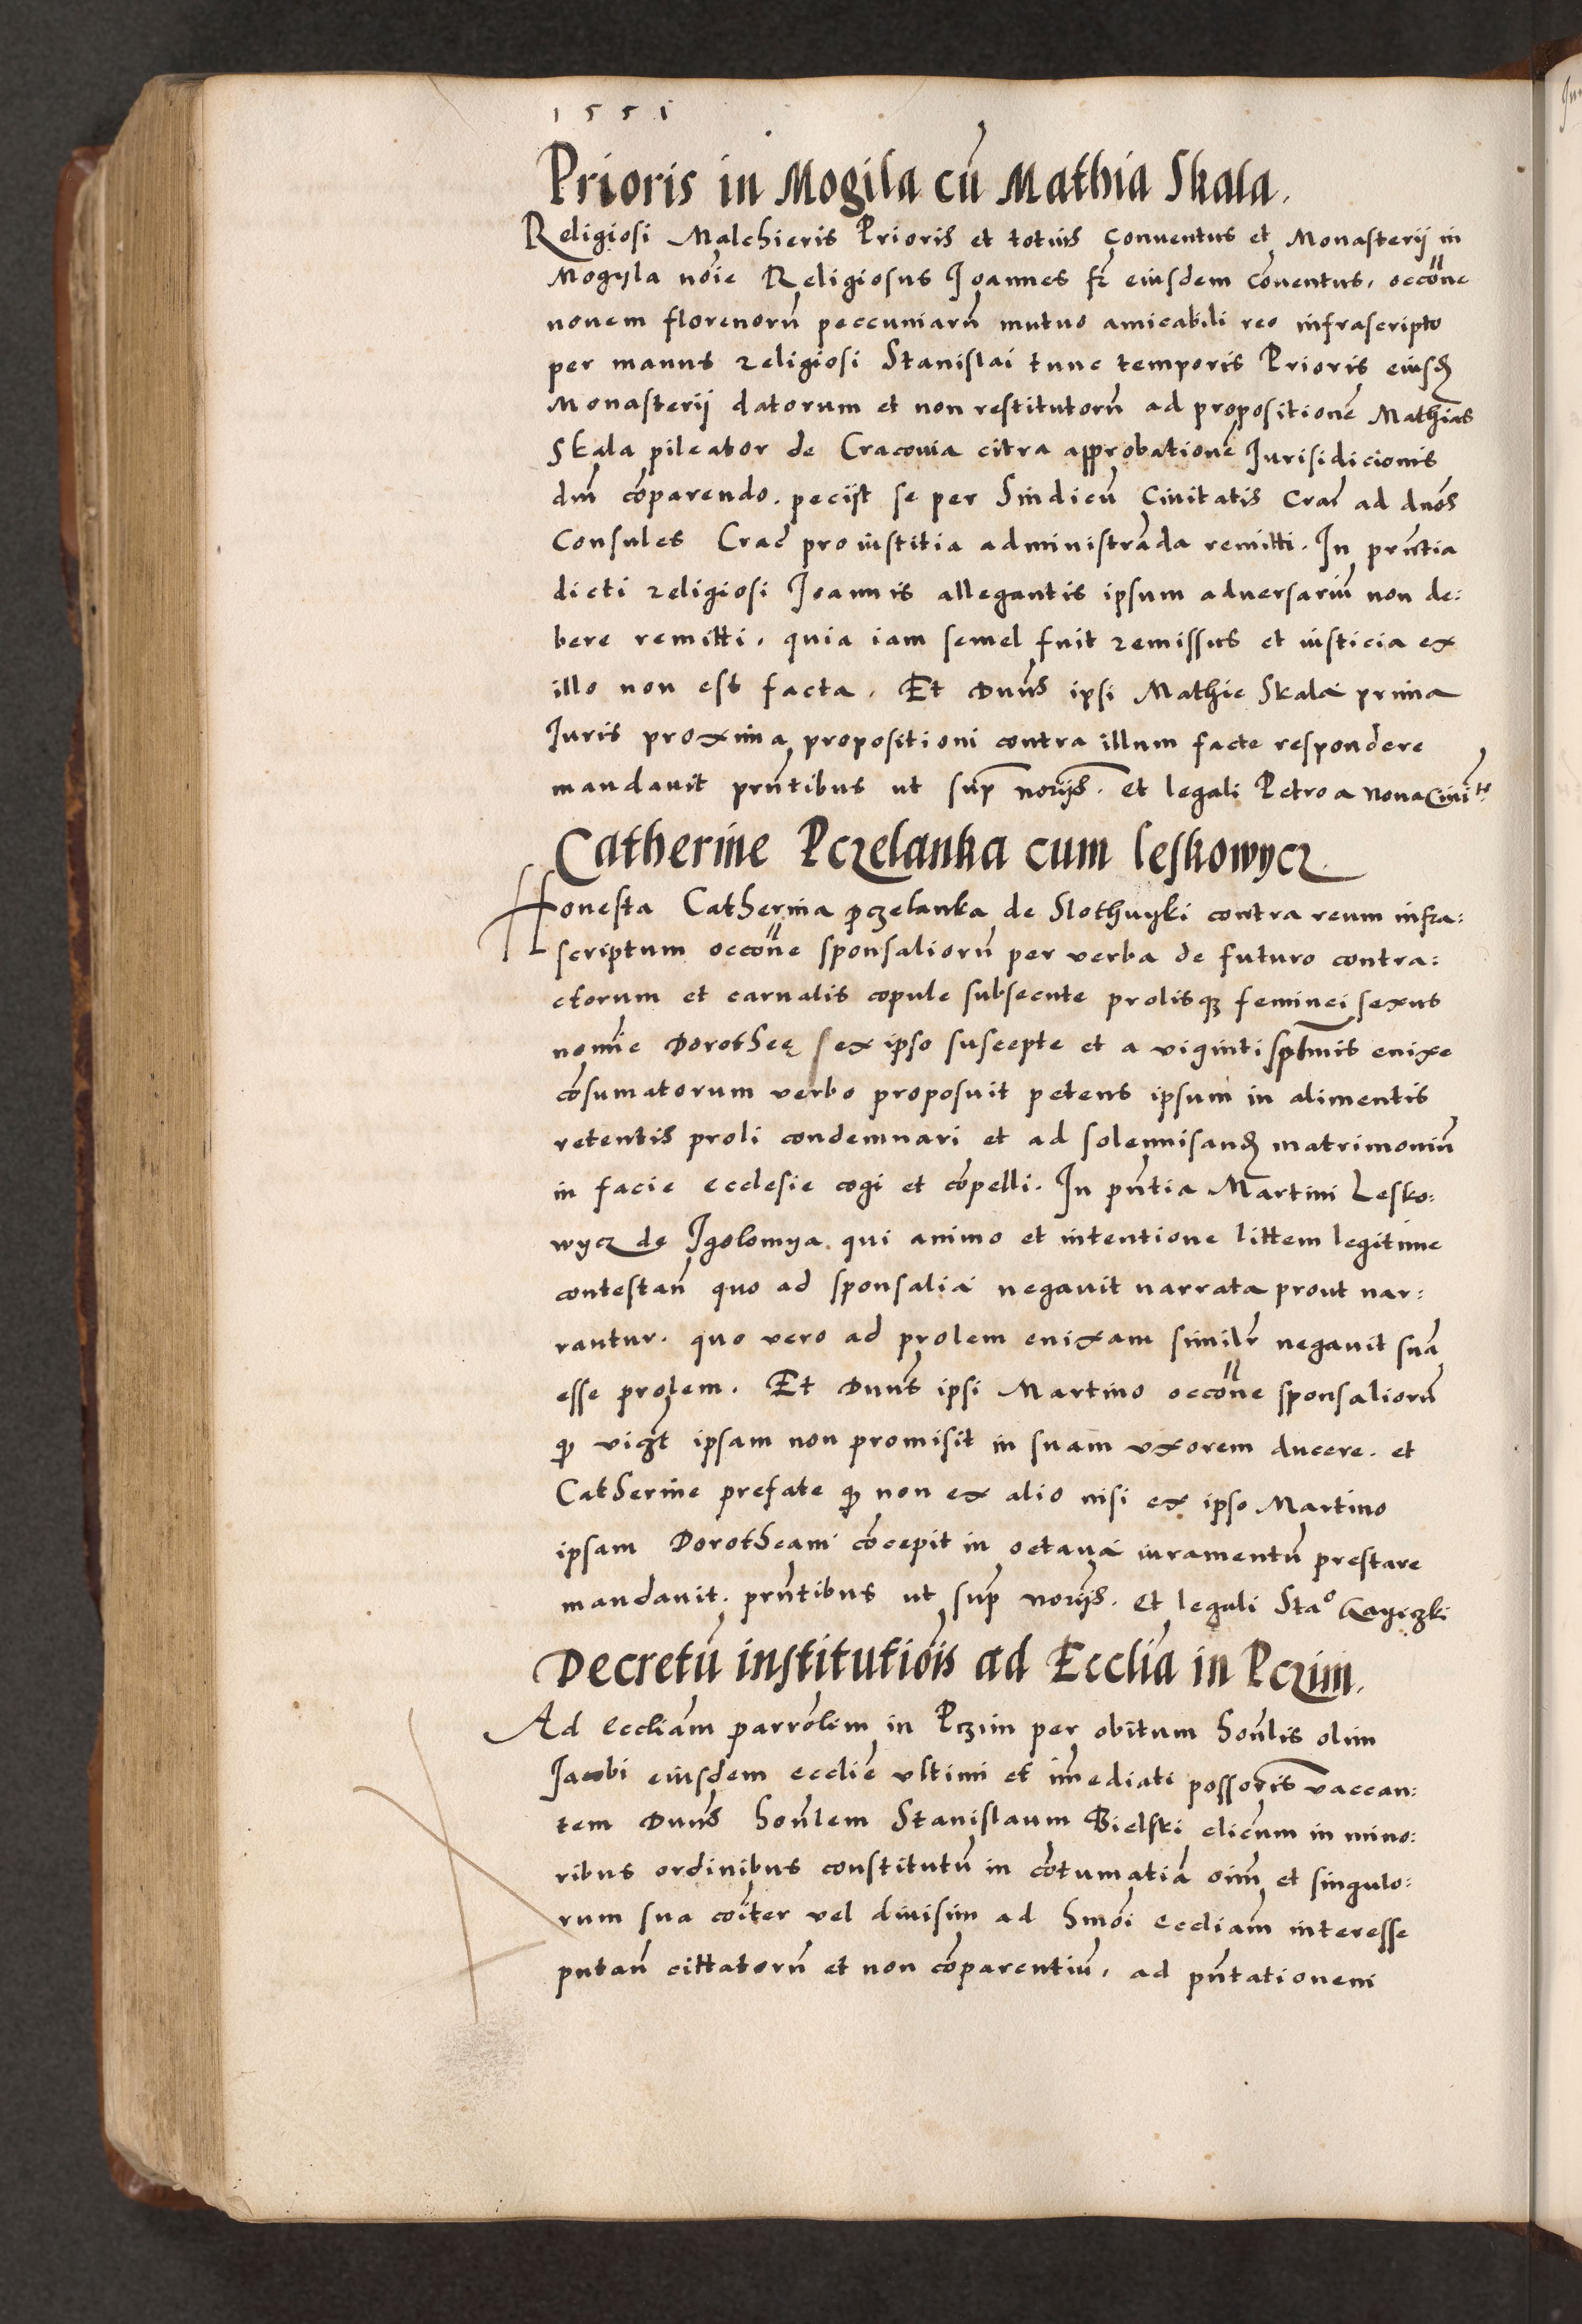 1551
Prioris in Mogila cū Mathia Skala.
Religiosi Malchieris Prioris et totius Conuentus et Monasterij in
Mogyla noīe Religiosus Joannes fr̄ eiusdem Cōuentus, occōne
nouem florenorū peccuniarū mutuo amicabili reo infrascripto
per manus religiosi Stanislai tunc temporis Prioris eiusđ
Monasterij datorum et non restitutorū ad propositionē Mathias
Skala pileator de Cracouia citra approbationē Jurisidicionis
dm̄ cōparendo. peciit se per Sindicū Ciuitatis Crač ad dnōs
Consules Crač pro iustitia administrāda remitti. In prn̄tia
dicti religiosi Joannis allegantis ipsum aduersariū non de:
bere remitti, quia iam semel fuit remissus et iusticia ex
illo non est facta. Et Dnūs ipsi Mathie Skala prima
Juris proxima propositioni contra illum facte respondere
mandauit prn̄tibus ut sup̄ norijs. et legali Petro a Noua Ciuite
Catherine Pczelanka cum leskowycz
Honesta Catherina pczelanka de Slothuyki contra reum infra:
scriptum occōne sponsaliorū per verba de futuro contra:
ctorum et carnalis copule subsecute prolisqꝫ feminei sexus
nomīe Dorotheę ex ipso suscepte et a viginti sptīmis enixe
cōsumatorum verbo proposuit petens ipsum in alimentis
retentis proli condemnari et ad solemnisanđ matrimoniū
in facie ecclesie cogi et cōpelli. In pn̄tia Martini Lesko:
wycz de Jgolomya qui animo et intentione littem legitime
contestan̄ quo ad sponsalia negauit narrata prout nar:
rantur. quo vero ad prolem enixam similr̄ negauit suā
esse prolem. Et Dnūs ipsi Martino occōne sponsaliorū
qꝫ vigꝫt ipsam non promisit in suam vxorem ducere. et
Catherine prefate qꝫ non ex alio nisi ex ipso Martino
ipsam Dorotheam cōcepit in octaua iuramentū prestare
mandauit. prn̄tibus ut sup̄ norijs. et legali Stao
Decretū institutiōis ad Eccliā in Pczim.
Ad eccliam parrōlem in Pczim per obitum honl̄is olim
Jacobi eiusdem ecclīe vltimi et im̄ediati possorīs vaccan:
tem Dnūs honl̄em Stanislaum Bielski clicum in mino:
ribus ordinibus constitutū in cōtumatiā oīm et singulo:
rum sua coīter vel diuisim ad hmōi eccliam interesse
putan̄ cittatorū et non cōparentiū, ad pn̄tationem